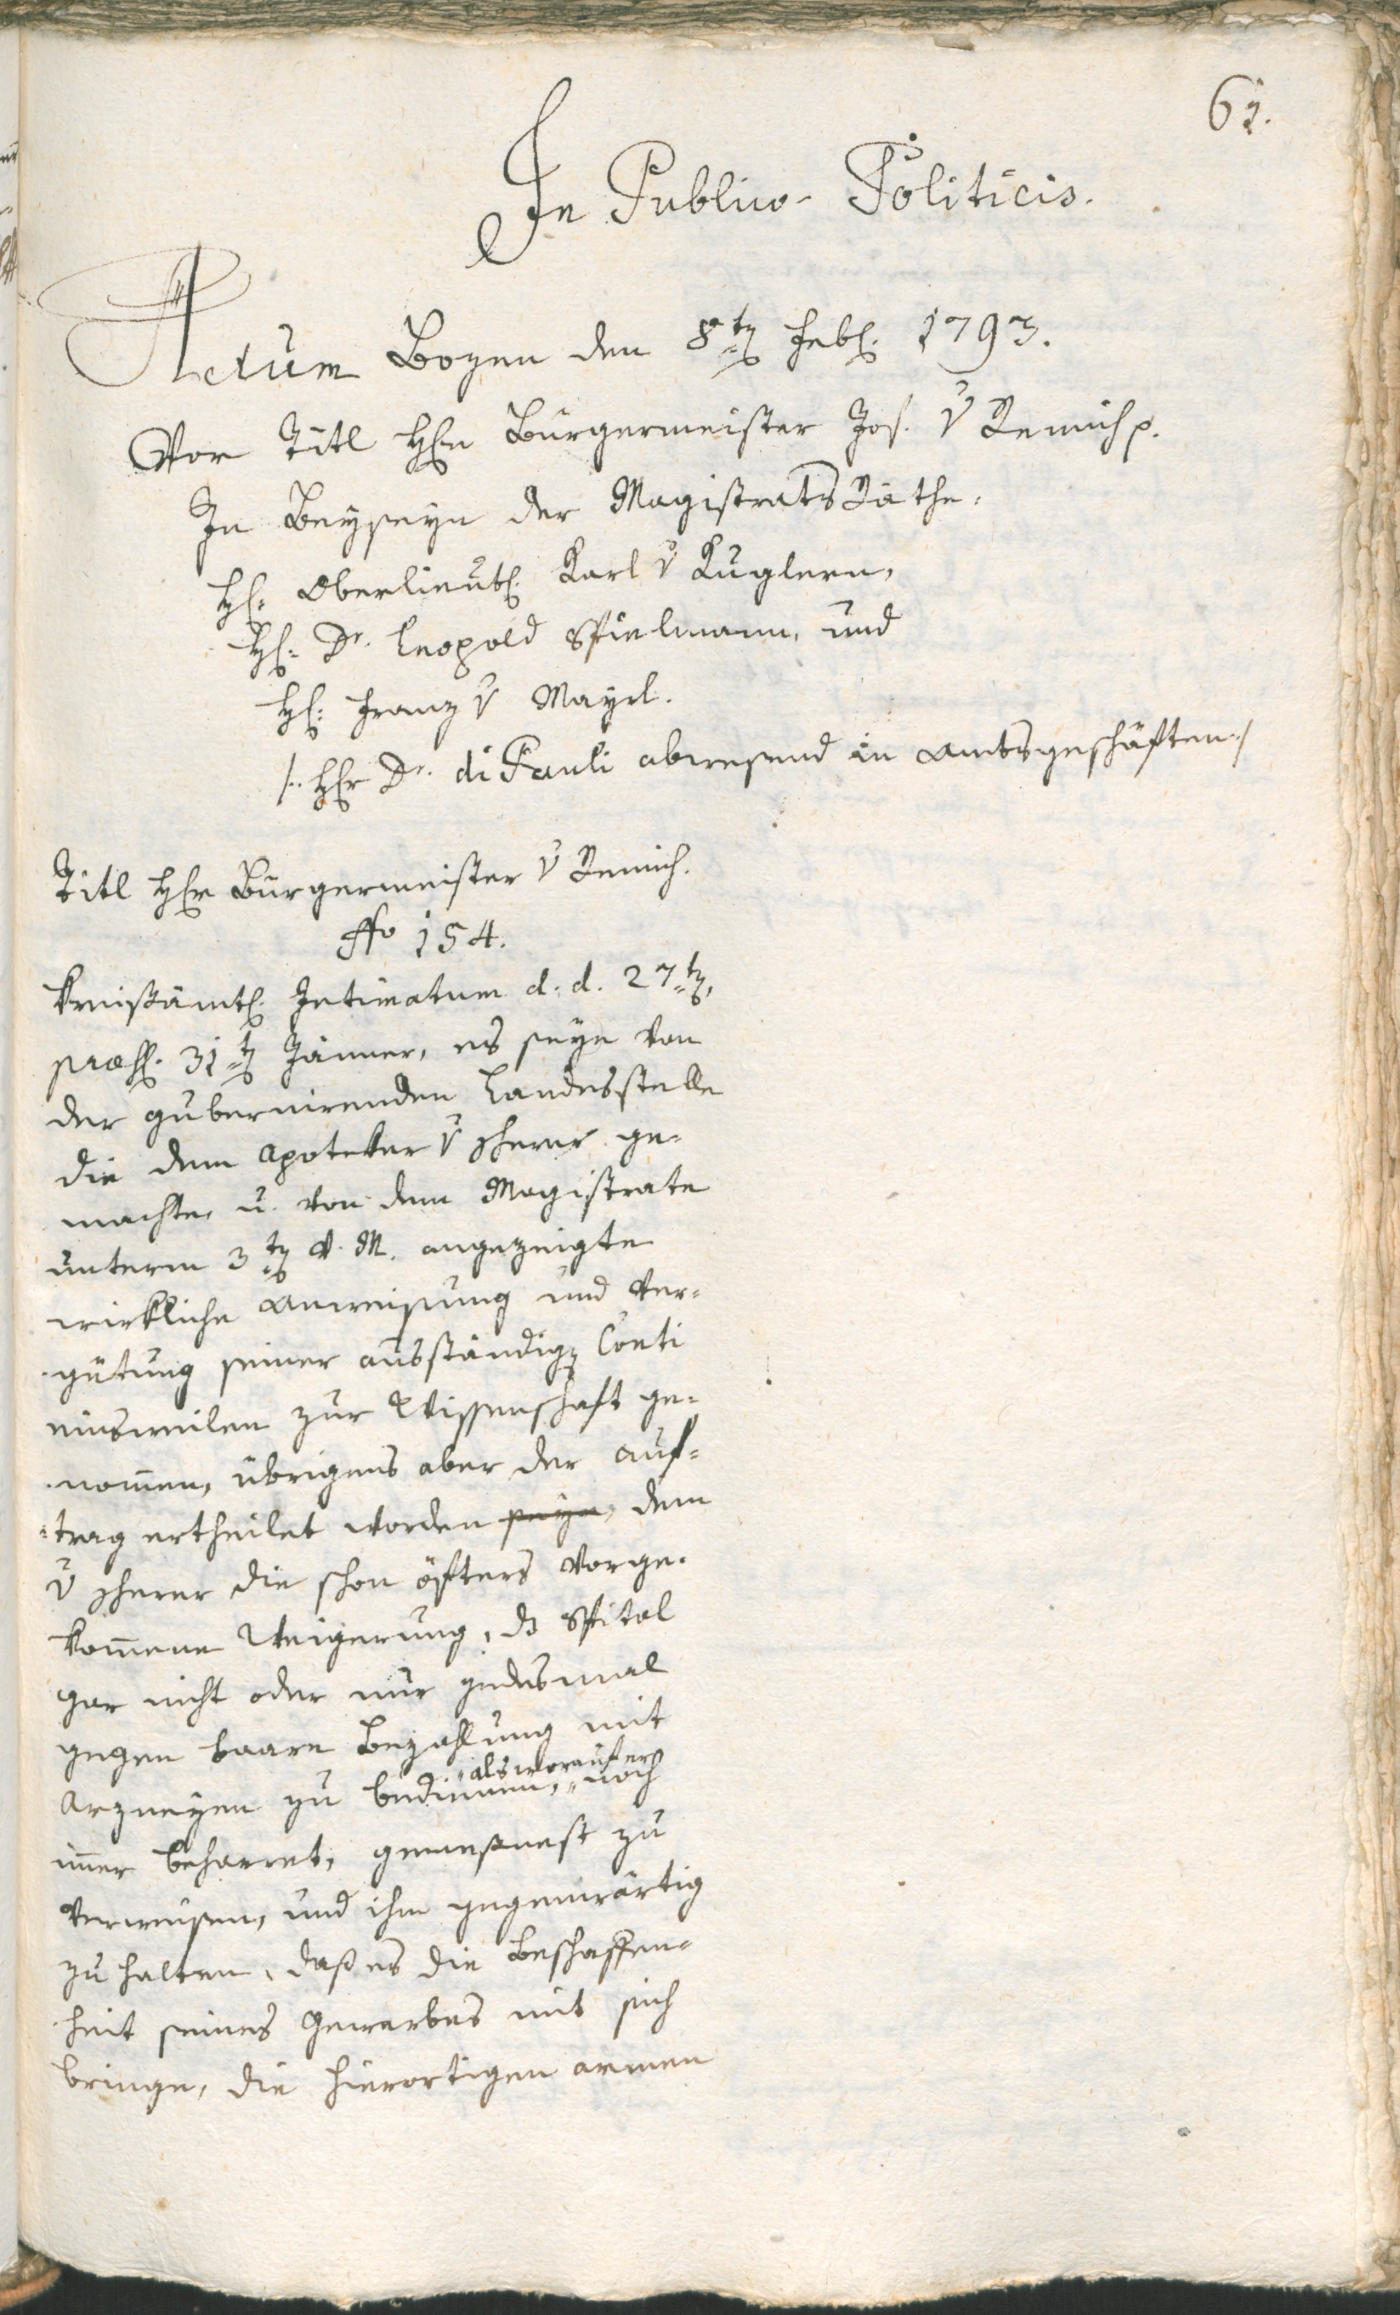 61.
In Publico-Politicis.
Actum Bozen den 8tn Febr. 1793.
Vor Titl Hrn Burgermeister Jos. v Remich p.
In Beyseyn der Magistrats Räthe,
Hr. Oberlieut. Karl v Kuglern,
Hr. Dr. Leopold Spielmann, und
Hr. Franz v Mayrl.
/: Hr Dr. di Pauli abwesend in Amtsgeschäften :/
Titl Hr Burgermeister v Remich.
No 154.
Kreißämtl. Intimatum d. d. 27tn,
præs. 31tn Jänner, es seye von
der gubernirenden Landesstelle
die dem Apoteker v Scherer ge-
machte, u. von dem Magistrate
unterm 3tn v. M. angezeigte
wirkliche Anweisung und Ver-
gütung seiner ausständign Conti
einsweilen zur Wissenschaft ge-
nom̄en, übrigens aber der Auf-
trag ertheilet worden seye, dem
v Scherer die schon öfters vorge-
kom̄ene Weigerung, ds Spital
gar nicht oder nur jedesmal
gegen baare Bezahlung mit
Arzneyen zu bedienen, als worauf er noch
im̄er beharret, gemeßnest zu
verweisen, und ihm gegenwärtig
zu halten, daß es die Beschaffen-
heit seines Gewerbes mit sich
bringe, die hierortigen armen